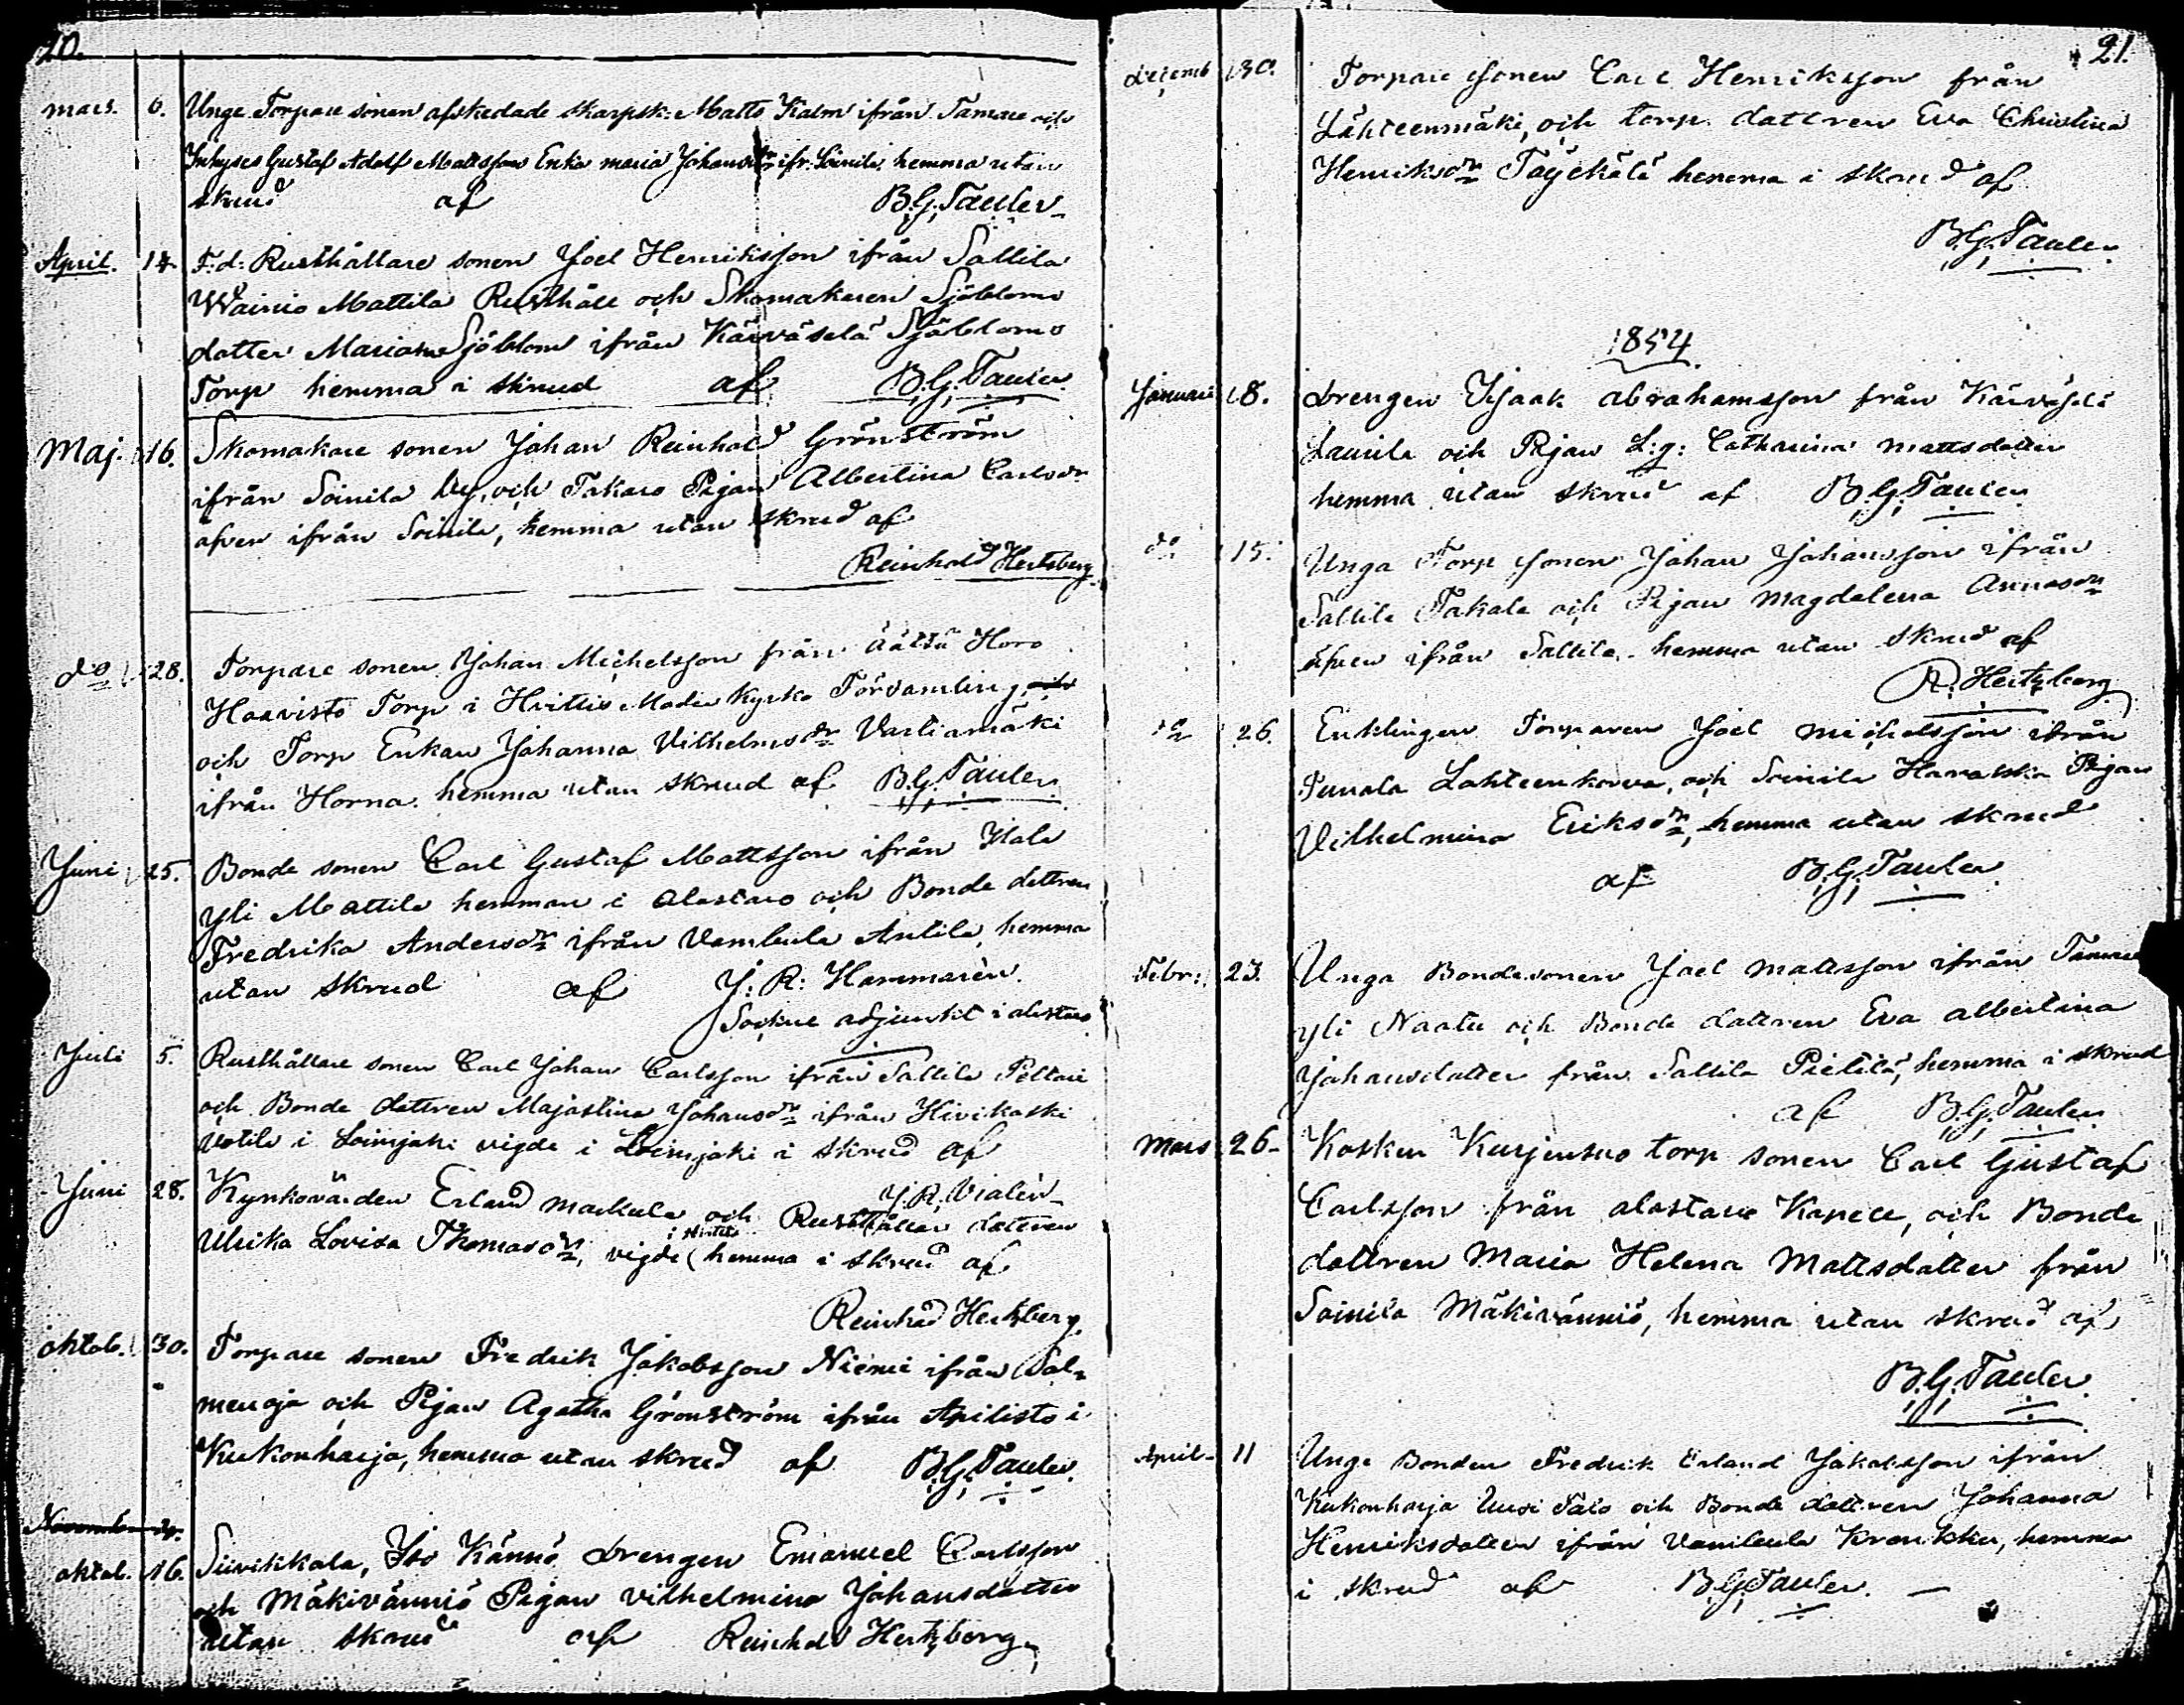 20.
mars. 6. Unge Torpare sonen afskedade skarpsk: Matts Kalm ifrån Tamare och
Inhyses Gustaf Adolf Mattssons Enka maria Johansdr ifr. Soinila, hemma utan
skrud af B.G. Tauler
April. 14 F.d: Rusthållare sonen Joel Henriksson ifrån Sallila
Wainio Mattila Rusthåll och Skomakaren Sjöbloms
dotter Maria Sjöblom ifrån Kärväselä Sjöbloms
Torp hemma i skrud af B.G. Tauler
Maj. 16. Skomakare sonen Johan Reinhold Grönström
ifrån Soinila by, och Takaro Pigan Albertina Carlsdr
äfven ifrån Soinila, hemma utan skrud af
Reinhold Hertzberg
do 28. Torpare sonen Johan Michelsson från Horo
Haavisto Torp i Hvittis Moder kyrko Församling
och Torp Enkan Johanna Vilhelmsdr Vartiamäki
ifrån Horna. hemma utan skrud af B.G. Tauler
Juni 25. Bonde sonen Carl Gustaf Mattsson ifrån
Yli Mattila hemman i Alastaro och Bonde dottren
Fredrika Andersdr ifrån Vambula Antila, hemma
utan skrud af J: R: Hammarèn.
Sockne adjunkt i alastaro
Juli 5. Rusthållare sonen Carl Johan Carlsson ifrån Sallila Peltari
och Bonde dottren Majastina Johansdr ifrån Hivikoski
i Loimjoki vigde i Loimjoki i skrud af
J.R. Vialèn
Juni 28. Kyrkovärden Erland markula och Rusthållar dottren
Ulrika Lovisa Thomasdr, vigde (hemma i skrud af
Reinhold Hertzberg
oktob. 30. Torpare sonen Fredrik Jakobsson Niemi ifrån Sal-
menoja och Pigan Agatha Grönström ifrån Apilisto i
Kukonharja, hemma utan skrud af B.G. Tauler.
November
oktob. 16. Suvikkala, Iso Kännö, drengen Emanuel Carlsson
och Mäkivänniö Pigan Vilhelmina Johansdotter
utan skrud af Reinhold Hertzberg
21.
decemb 30. Torpare sonen Carl Henriksson från
Lähteenmäki, och torp. dottren Eva Christina
Henriksdr hemma i skrud af
B.G. Tauler
1854
Januari 8. drengen Isaak abrahamsson från Kärväselä
Laurila och Pigan L:g: Catharina mattsdotter
hemma utan skrud af B.G. Tauler
do 15. Unga Torp sonen Johan Johansson ifrån
Sallila Takala och Pigan magdalena Annasdr
äfven ifrån Sallila. hemma utan skrud af
R. Hertzberg
do 26. Enklingen Torparen Joel michelsson ifrån
Lahteenkorva, och Soinila Pigan
Vilhelmina Eriksdr, hemma utan skrud
af B.G. Tauler
Febr: 23. Unga Bondesonen Joel mattsson ifrån
yli Naatu och Bonde dottren Eva albertina
Johansdotter från Sallila Pietilä, hemma i skrud
af B.G. Tauler
Mars 26. Kosken Kurjensuo torp sonen Carl Gustaf
Carlsson från alastaro Kapell, och Bonde
dottren Maria Helena Mattsdotter från
Soinila Mäkivänniö, hemma utan skrud af
B.G. Tauler
April 11 Unge Bonden Fredrik Erland Jakobsson ifrån
Kukonharja Uusi Talo och Bonde dottren Johanna
Henriksdotter ifrån Vambula Kroukku, hemma
i skrud af B.G. Tauler.